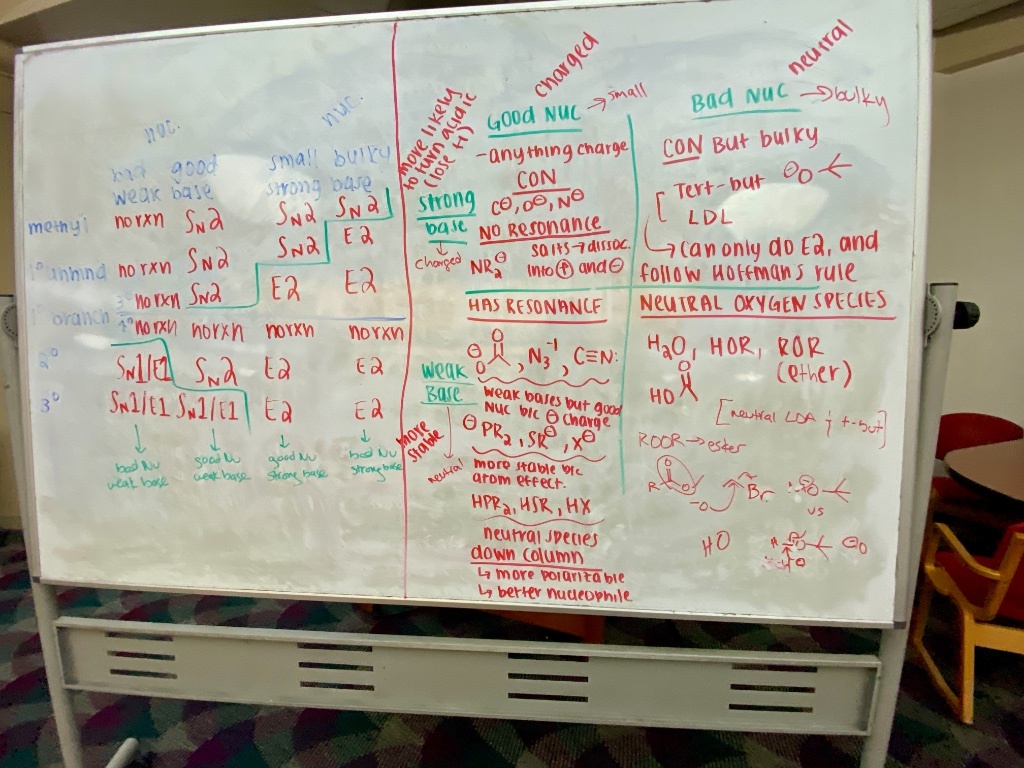 nuc.
nuc.
bad good small bulky
weak base strong base
methyl norxn SN2 SN2 SN2
1° unhind norxn SN2 SN2 E2
1° branch 3° norxn SN2 E2 E2
norxn norxn norxn norxn
2° SN1/E1 SN2 E2 E2
3° SN1/E1 SN1/E1 E2 E2
bad Nu weak base
good Nu weak base
good Nu strong base
bad Nu strong base
more likely
to turn acidic
(lose H)
charged
GOOD NUC → small
-anything charge
CON
C⊖, O⊖, N⊖
NO RESONANCE
NR2⊖ salts → dissoc.
into ⊕ and ⊖
strong
base
↓
charged
HAS RESONANCE
⊖O, N3-1, C≡N:
weak bases but good
Nuc b/c ⊖ charge
⊖PR2, SR⊖, X⊖
more stable b/c
atom effect.
HPR2, HSR, HX
neutral species
down column
↳ more polaritable
↳ better nucleophile
WEAK
BASE
more
stable
neutral
neutral
Bad NUC → bulky
CON But bulky
Tert-but ⊖O
LDL
→ can only do E2, and
follow Hoffman's rule
NEUTRAL OXYGEN SPECIES
H2O, HOR, ROR
(ether)
HO O
[neutral LDA & t-but]
ROOR → ester
R O O
-O Br
:O
vs
HO
⊖O